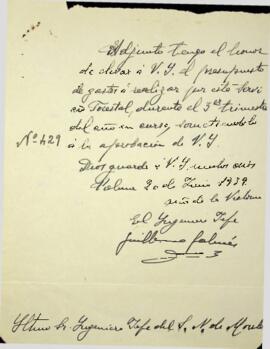 Adjunto tengo el honor
de elevar á V.Y. el presupuesto
de gastos á realizar por este Servi
cio Forestal, durante el 3er trimestre
del año en curso, sometiendolo
Nº 429
á la aprobación de V.Y.
Dios guarde á V.Y. muchos años
20 de Junio 1939.
Año de la Victoria
El Ingeniero Jefe
Guillermo
Iltmo Sr. Ingeniero Jefe del S. N. de